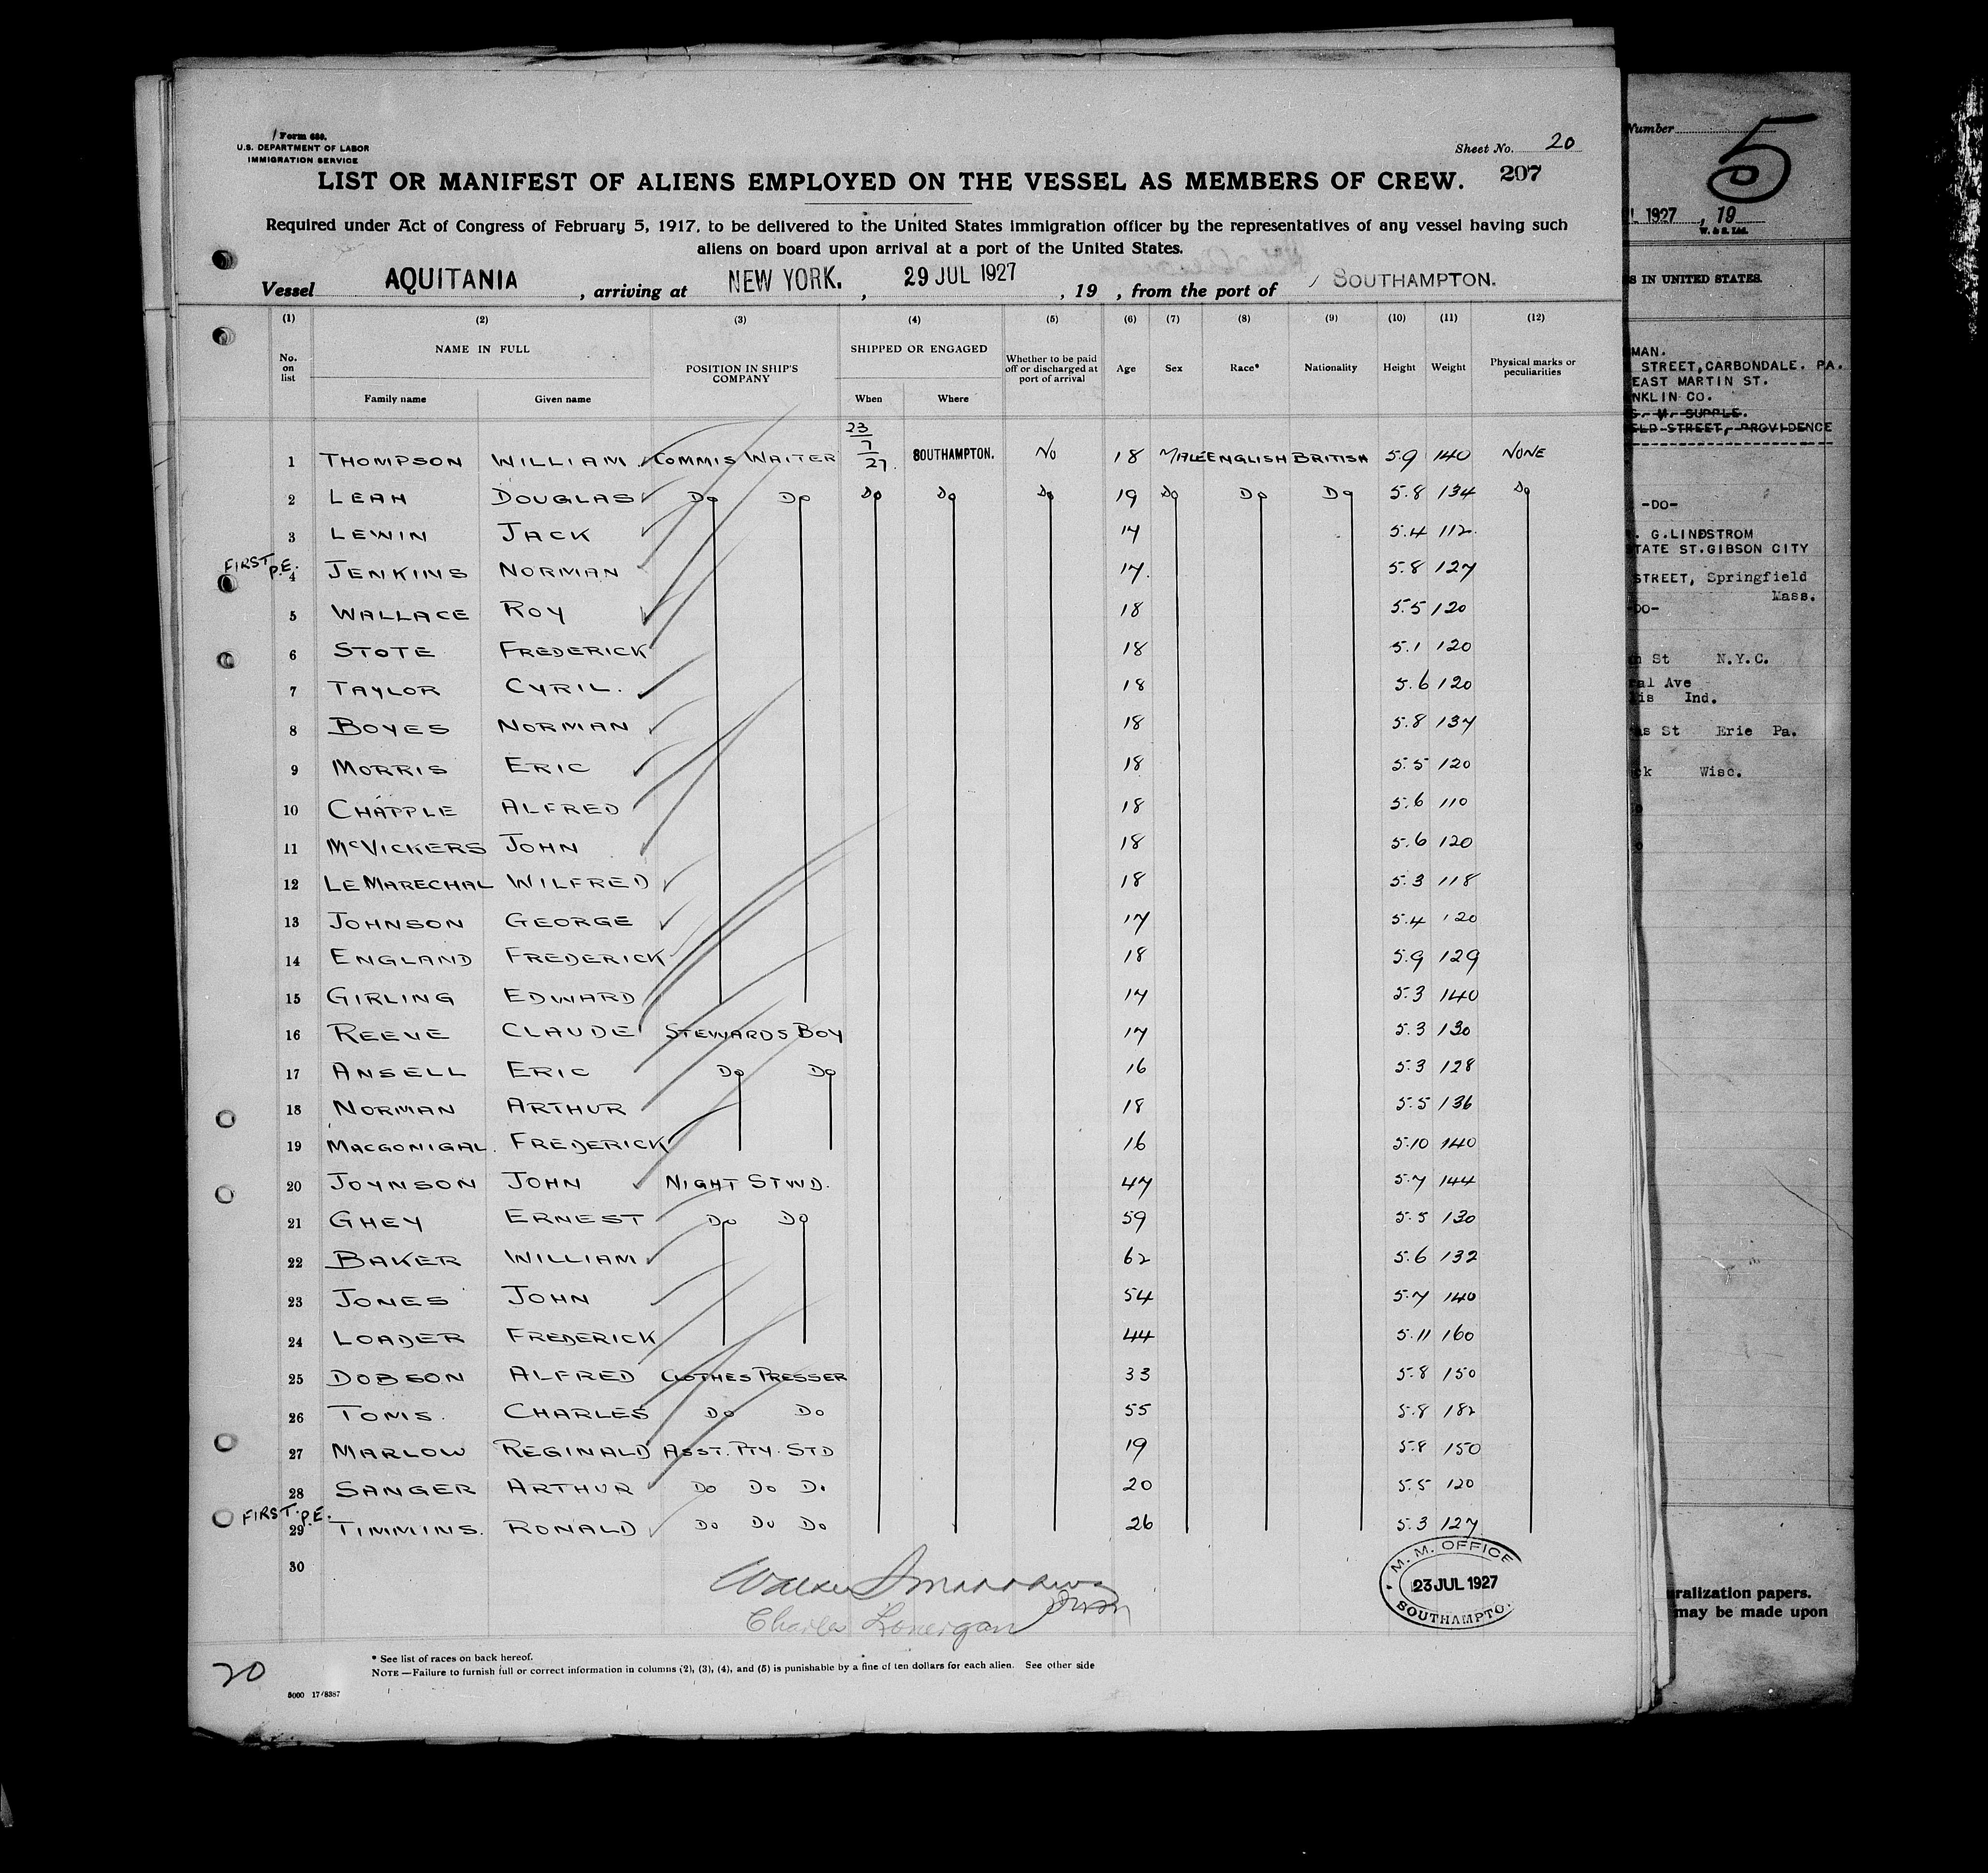 Form 680.
U.S. DEPARTMENT OF LABOR
IMMIGRATION SERVICE
Sheet No. 20
207
LIST OR MANIFEST OF ALIENS EMPLOYED ON THE VESSEL AS MEMBERS OF CREW.
Required under Act of Congress of February 5, 1917, to be delivered to the United States immigration officer by the representatives of any vessel having such
aliens on board upon arrival at a port of the United States.
Vessel AQUITANIA, arriving at NEW YORK., 29 JUL 1927, 19 , from the port of SOUTHAMPTON.
(1) (2) (3) (4) (5) (6) (7) (8) (9) (10) (11) (12)
No. on list NAME IN FULL POSITION IN SHIP'S COMPANY SHIPPED OR ENGAGED Whether to be paid off or discharged at port of arrival Age Sex Race* Nationality Height Weight Physical marks or peculiarities
Family name Given name When Where
1 THOMPSON WILLIAM COMMIS WAITER 23/7/27. SOUTHAMPTON. NO 18 MALE ENGLISH BRITISH 5.9 140 NONE
2 LEAH DOUGLAS DO DO DO DO DO 19 DO DO DO 5.8 134 DO
3 LEWIN JACK 17 5.4 112
FIRST P.E. 4 JENKINS NORMAN 17. 5.8 127
5 WALLACE ROY 18 5.5 120
6 STOTE FREDERICK 18 5.1 120
7 TAYLOR CYRIL. 18 5.6 120
8 BOYES NORMAN 18 5.8 137
9 MORRIS ERIC 18 5.5 120
10 CHAPPLE ALFRED 18 5.6 110
11 McVICKERS JOHN 18 5.6 120
12 LE MARECHAL WILFRED 18 5.3 118
13 JOHNSON GEORGE 17 5.4 120
14 ENGLAND FREDERICK 18 5.9 129
15 GIRLING EDWARD 17 5.3 140
16 REEVE CLAUDE STEWARDS BOY 17 5.3 130
17 ANSELL ERIC DO DO 16 5.3 128
18 NORMAN ARTHUR 18 5.5 136
19 MACGONIGAL. FREDERICK 16 5.10 140
20 JOYNSON JOHN NIGHT STWD. 47 5.7 144
21 GHEY ERNEST DO DO 59 5.5 130
22 BAKER WILLIAM 62 5.6 132
23 JONES JOHN 54 5.7 140
24 LOADER FREDERICK 44 5.11 160
25 DOBSON ALFRED CLOTHES PRESSER 33 5.8 150
26 TOMS. CHARLES DO DO 55 5.8 182
27 MARLOW REGINALD ASST. PTY. STD 19 5.8 150
28 SANGER ARTHUR DO DO DO 20 5.5 120
FIRST. P.E. 29 TIMMINS. RONALD DO DO DO 26 5.3 127
30
Charles Lonergan
M. M. OFFICE
23 JUL 1927
SOUTHAMPTO
* See list of races on back hereof.
NOTE —Failure to furnish full or correct information in columns (2), (3), (4), and (5) is punishable by a fine of ten dollars for each alien. See other side
20
5000 17/8387
Number
5
1927 , 19
W. & S. Ltd.
S IN UNITED STATES.
MAN.
STREET, CARBONDALE. PA.
EAST MARTIN ST.
NKLIN CO.
M. SUPPLE.
STREET, PROVIDENCE
-DO-
G. LINDSTROM
STATE ST. GIBSON CITY
STREET, Springfield
Mass.
-DO-
St N.Y.C.
ral Ave
lis Ind.
St Erie Pa.
ck Wisc.
ralization papers.
may be made upon